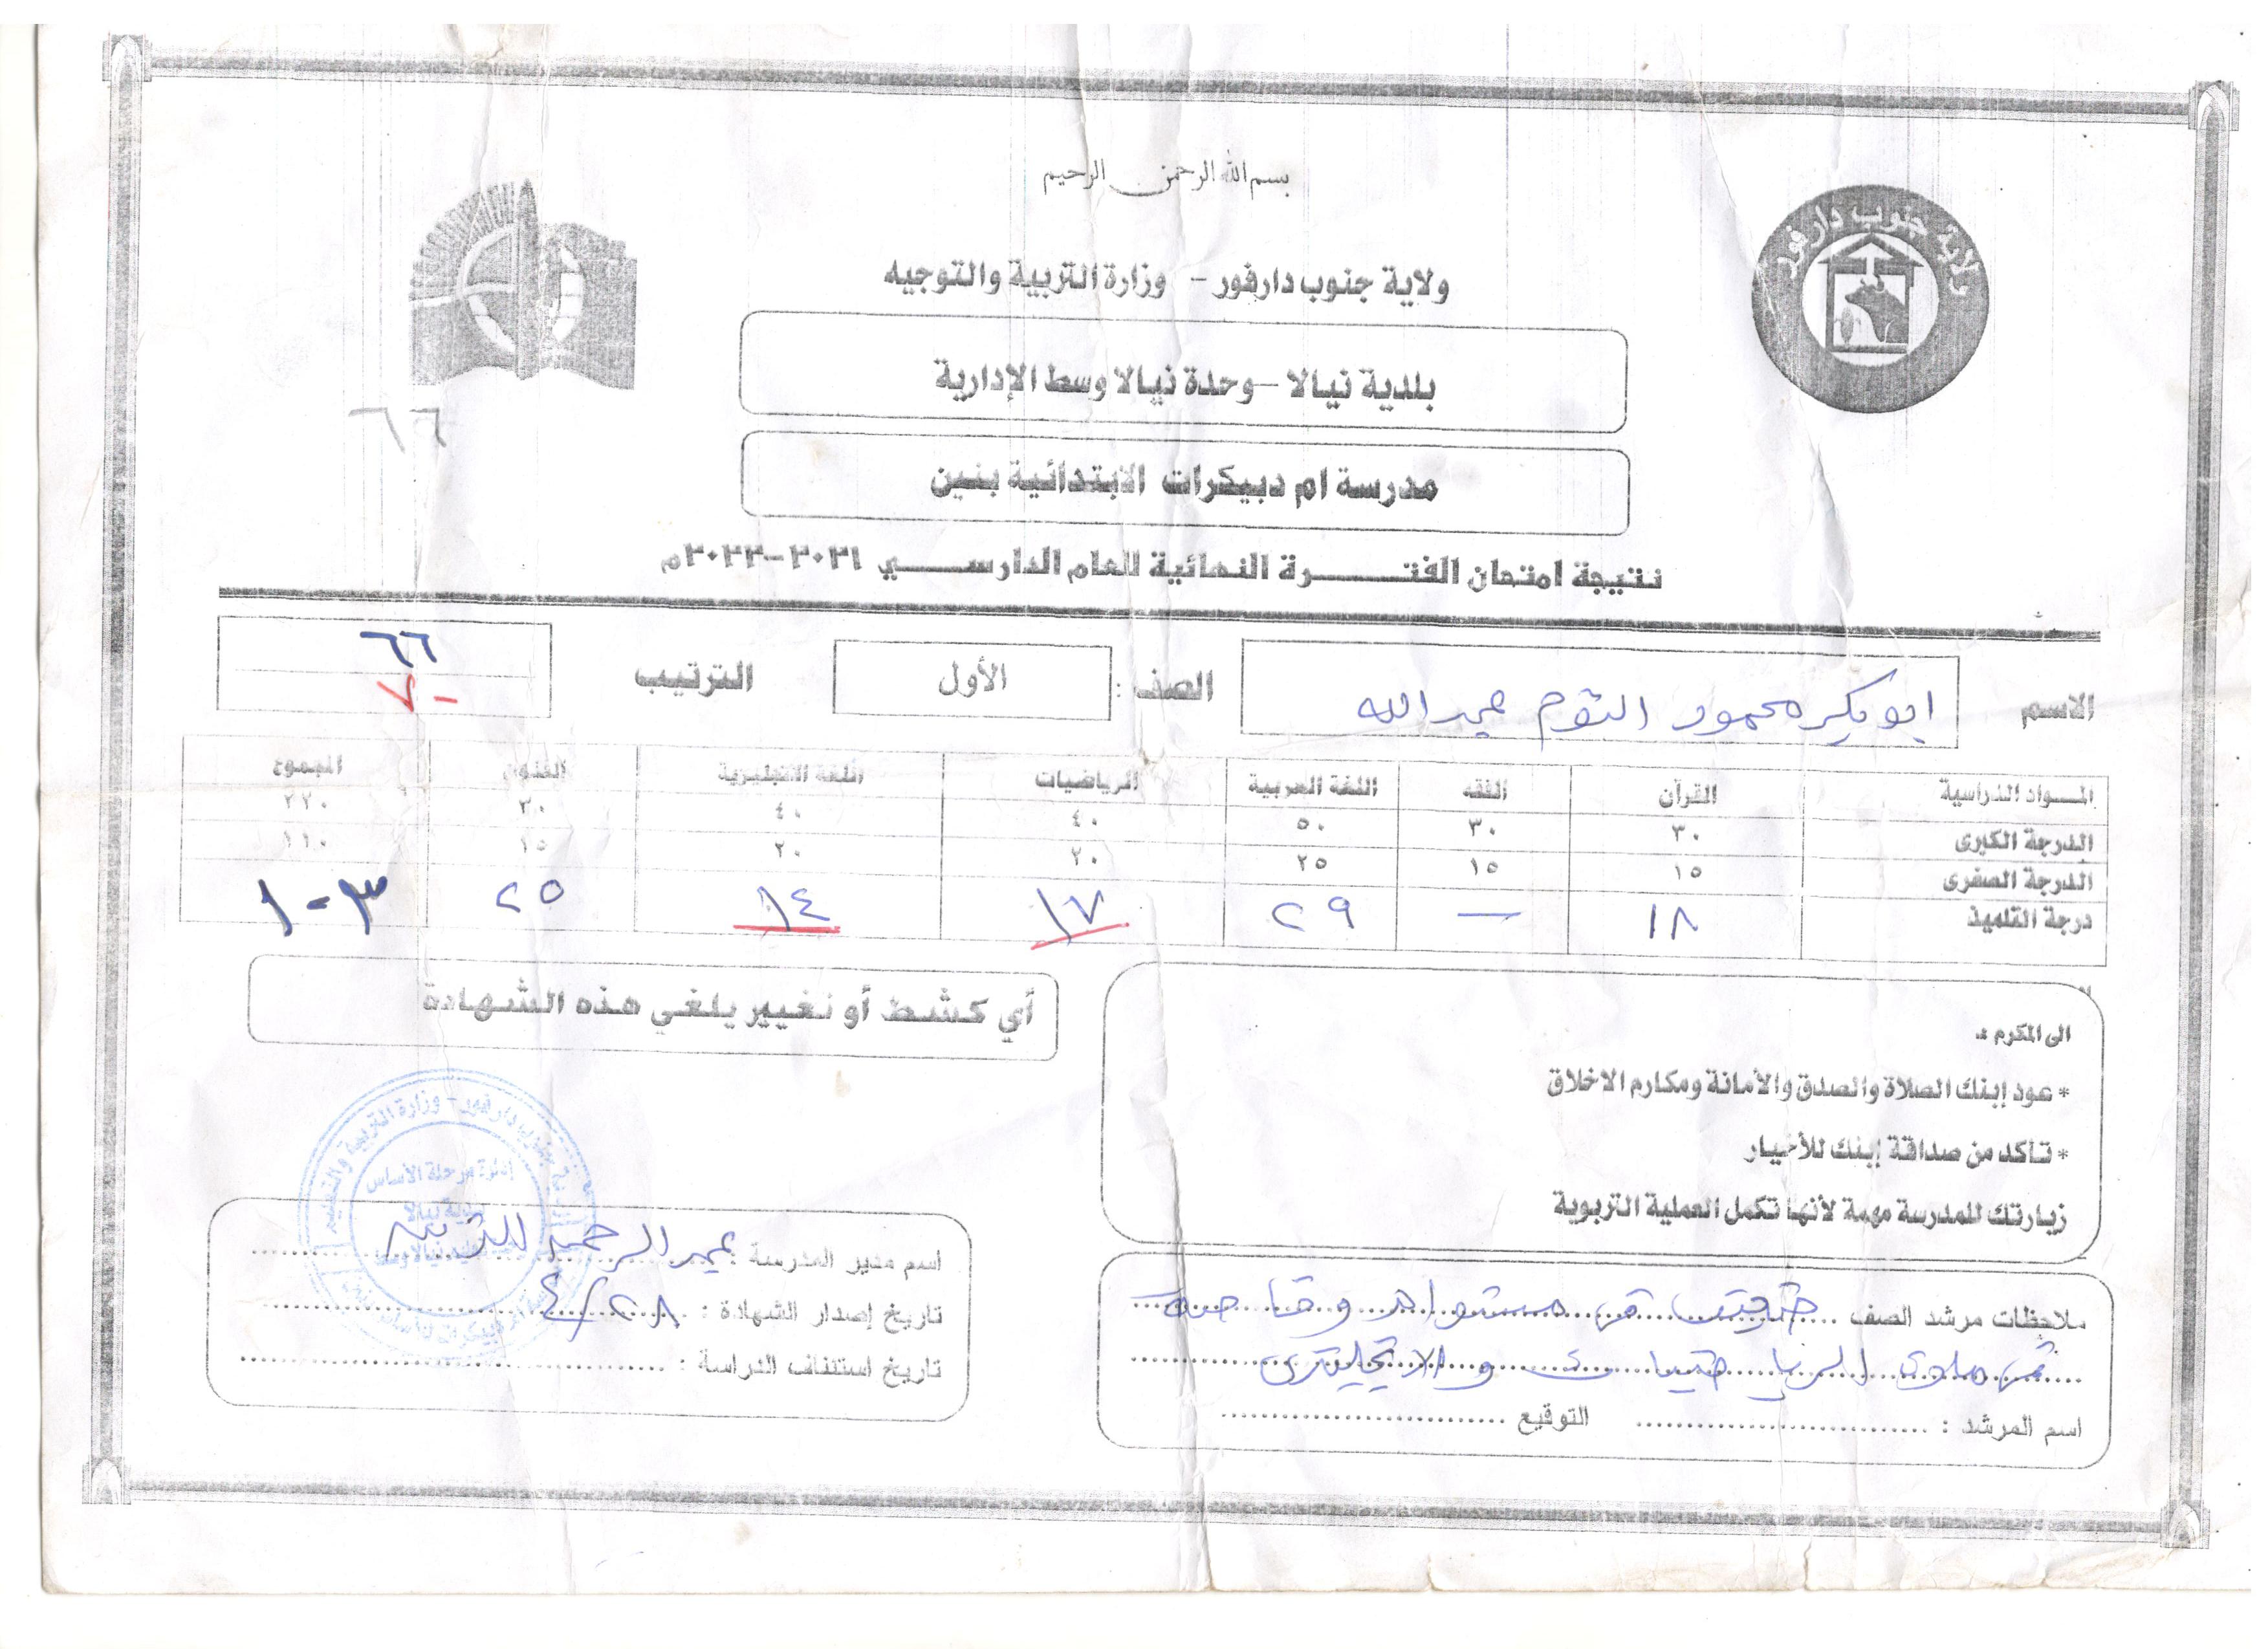 بسم الله الرحمن الرحيم
ولاية جنوب دارفور
ولاية جنوب دارفور - وزارة التربية والتوجيه
بلدية نيالا - وحدة نيالا وسط الإدارية
٦٦
مدرسة ام دبيكرات الابتدائية بنين
نتيجة امتحان الفترة النهائية للعام الدارسي ٢٠٢١-٢٠٢٢م
الاسم ابوبكر محمود التوم عبدالله الصف : الأول الترتيب ٦٦
٧٠
المواد الدراسية القرآن الفقه اللغة العربية الرياضيات اللغة الانجليزية الفنون المجموع
الدرجة الكبرى ٣٠ ٣٠ ٥٠ ٤٠ ٤٠ ٣٠ ٢٢٠
الدرجة الصغرى ١٥ ١٥ ٢٥ ٢٠ ٢٠ ١٥ ١١٠
درجة التلميذ ١٨ — ٢٩ ١٧ ١٤ ٢٥ ١٠٣
أي كشط أو تغيير يلغي هذه الشهادة
الى المكرم :ـ
* عود إبنك الصلاة والصدق والأمانة ومكارم الاخلاق
* تأكد من صداقة إبنك للأخيار
زيارتك للمدرسة مهمة لأنها تكمل العملية التربوية
ملاحظات مرشد الصف ضعيف في مستواه وخاصة
في مادتي الرياضيات والانجليزي
اسم المرشد : التوقيع
إدارة مرحلة الأساس
اسم مدير المدرسة : عبد الرحمن
تاريخ إصدار الشهادة : ٢٨/٤
تاريخ استئناف الدراسة :